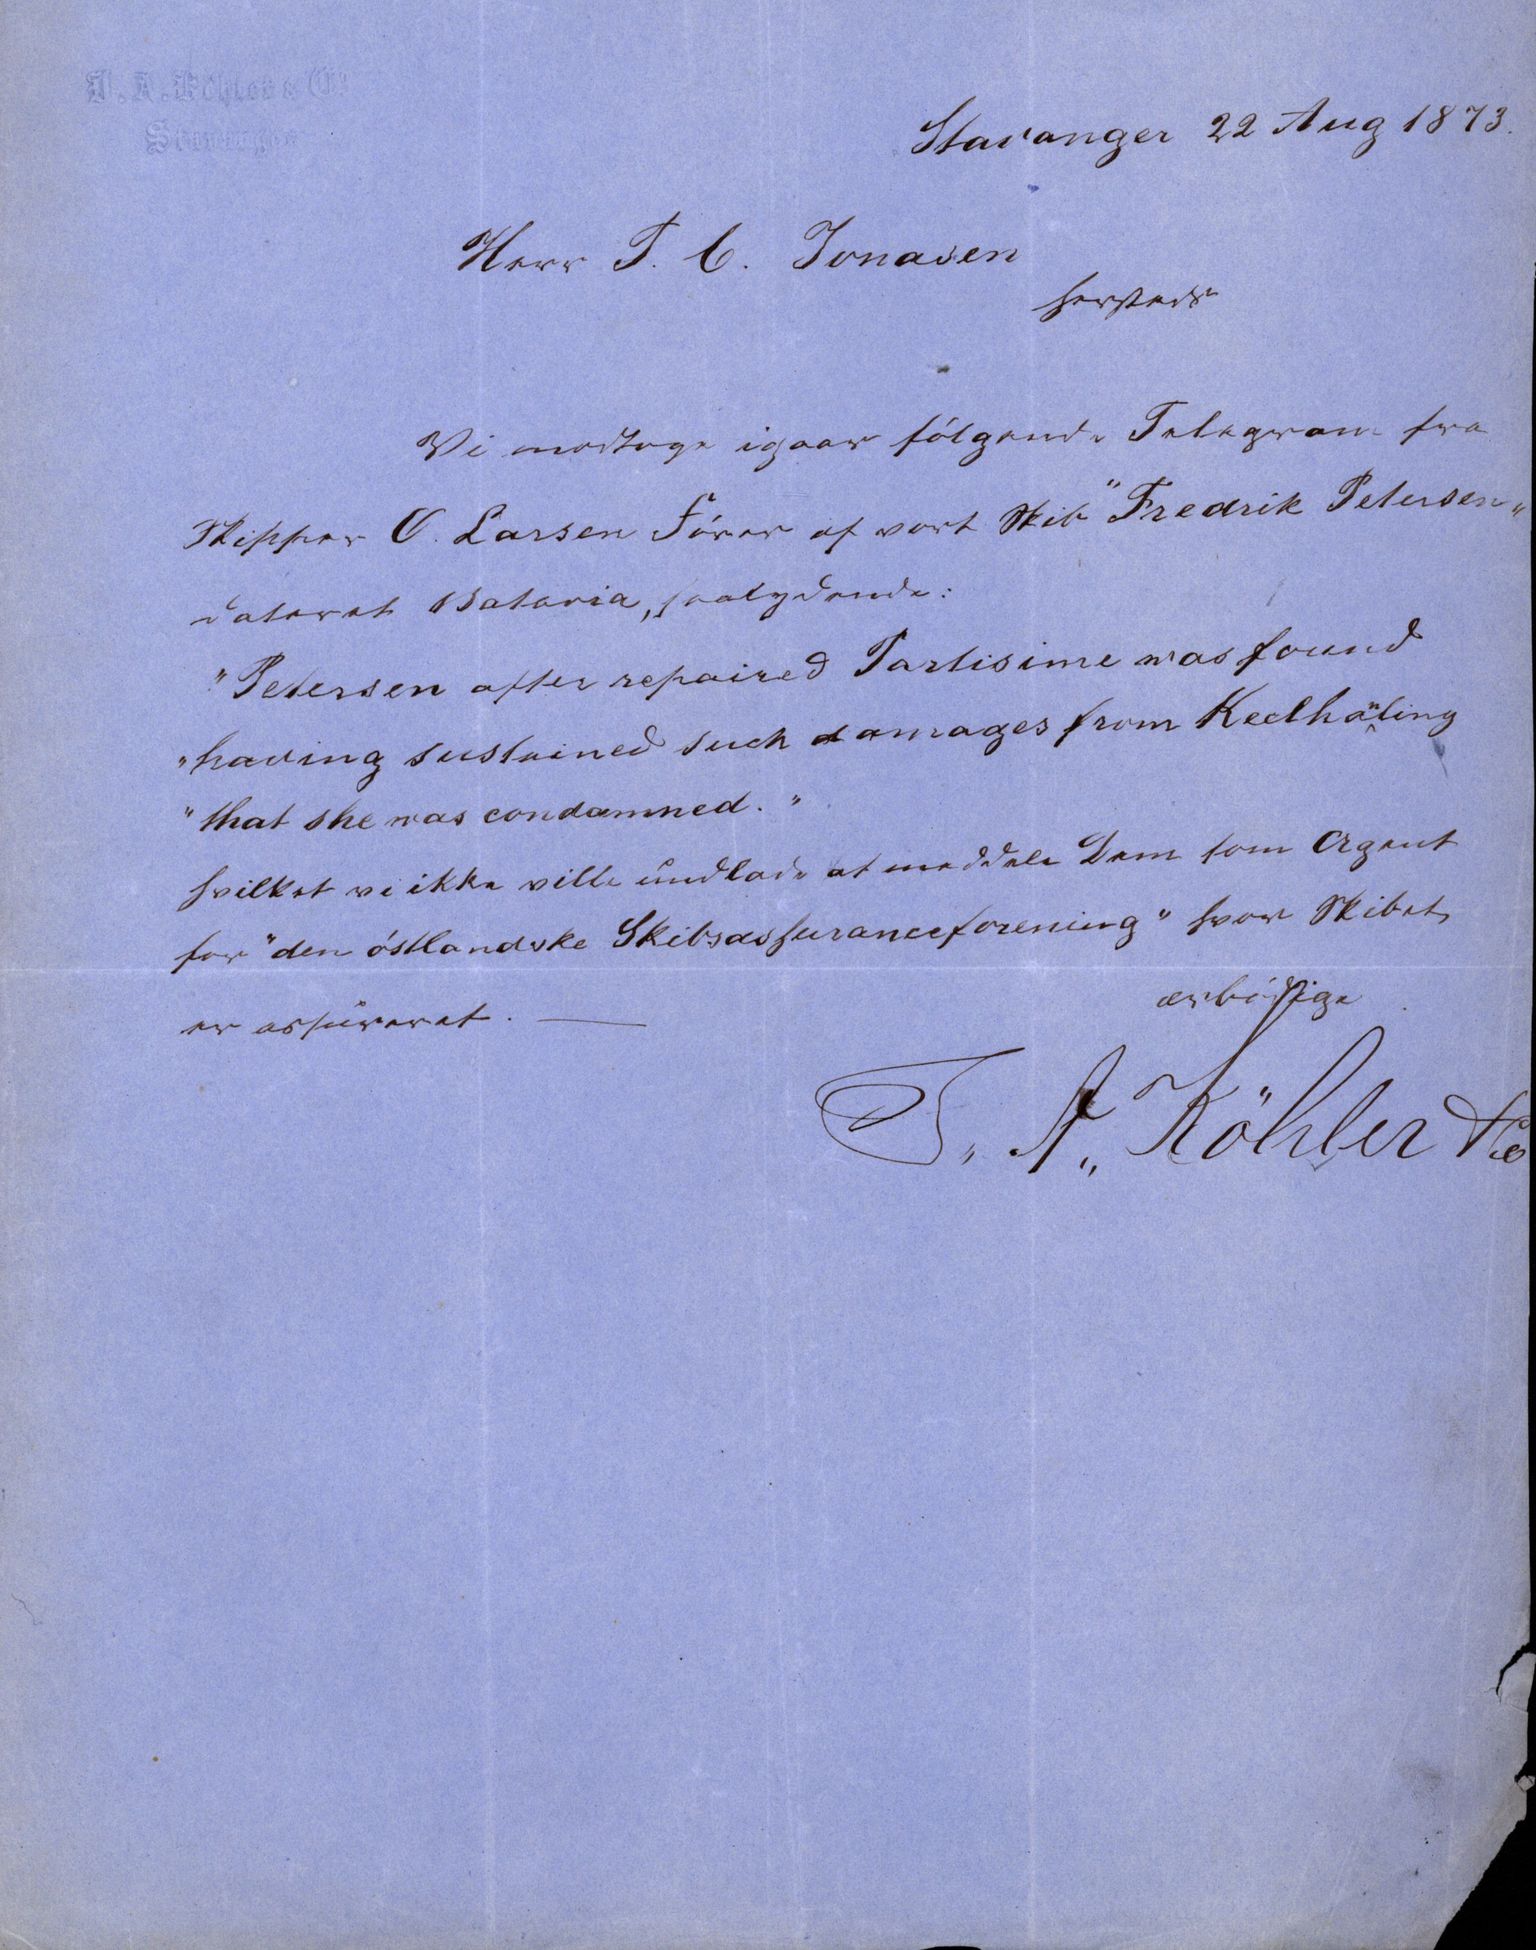 J. A. Köhler & Co
Stavanger
Stavanger 22 Aug 1873.
Herr T. C. Jonasen
hersteds
Vi modtoge igaar følgende Telegram fra
Skipper O. Larsen Fører af vort Skib "Fredrik Petersen"
dateret Batavia, saalydende:
"Petersen after repaired Partisime was found
"having sustained such damages from Keelhaling
"that she was condamned."
hvilket vi ikke ville undlade at meddele Dem som Agent
for "den östlandske Skibsassuranceforening" hvor Skibet
er assureret. —
ærbödige
T. A. Köhler & Co